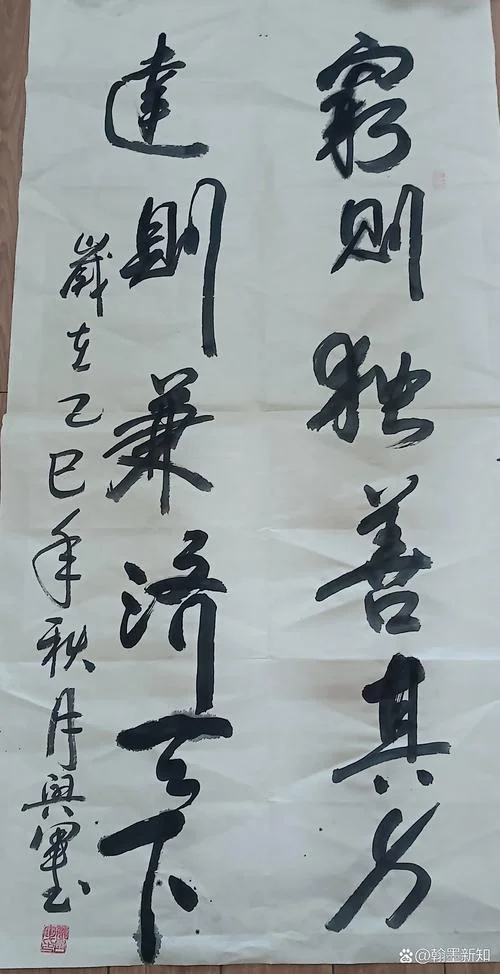 窮则独善其身
達則兼济天下
歲在乙巳年秋月興軍书
@翰墨新知